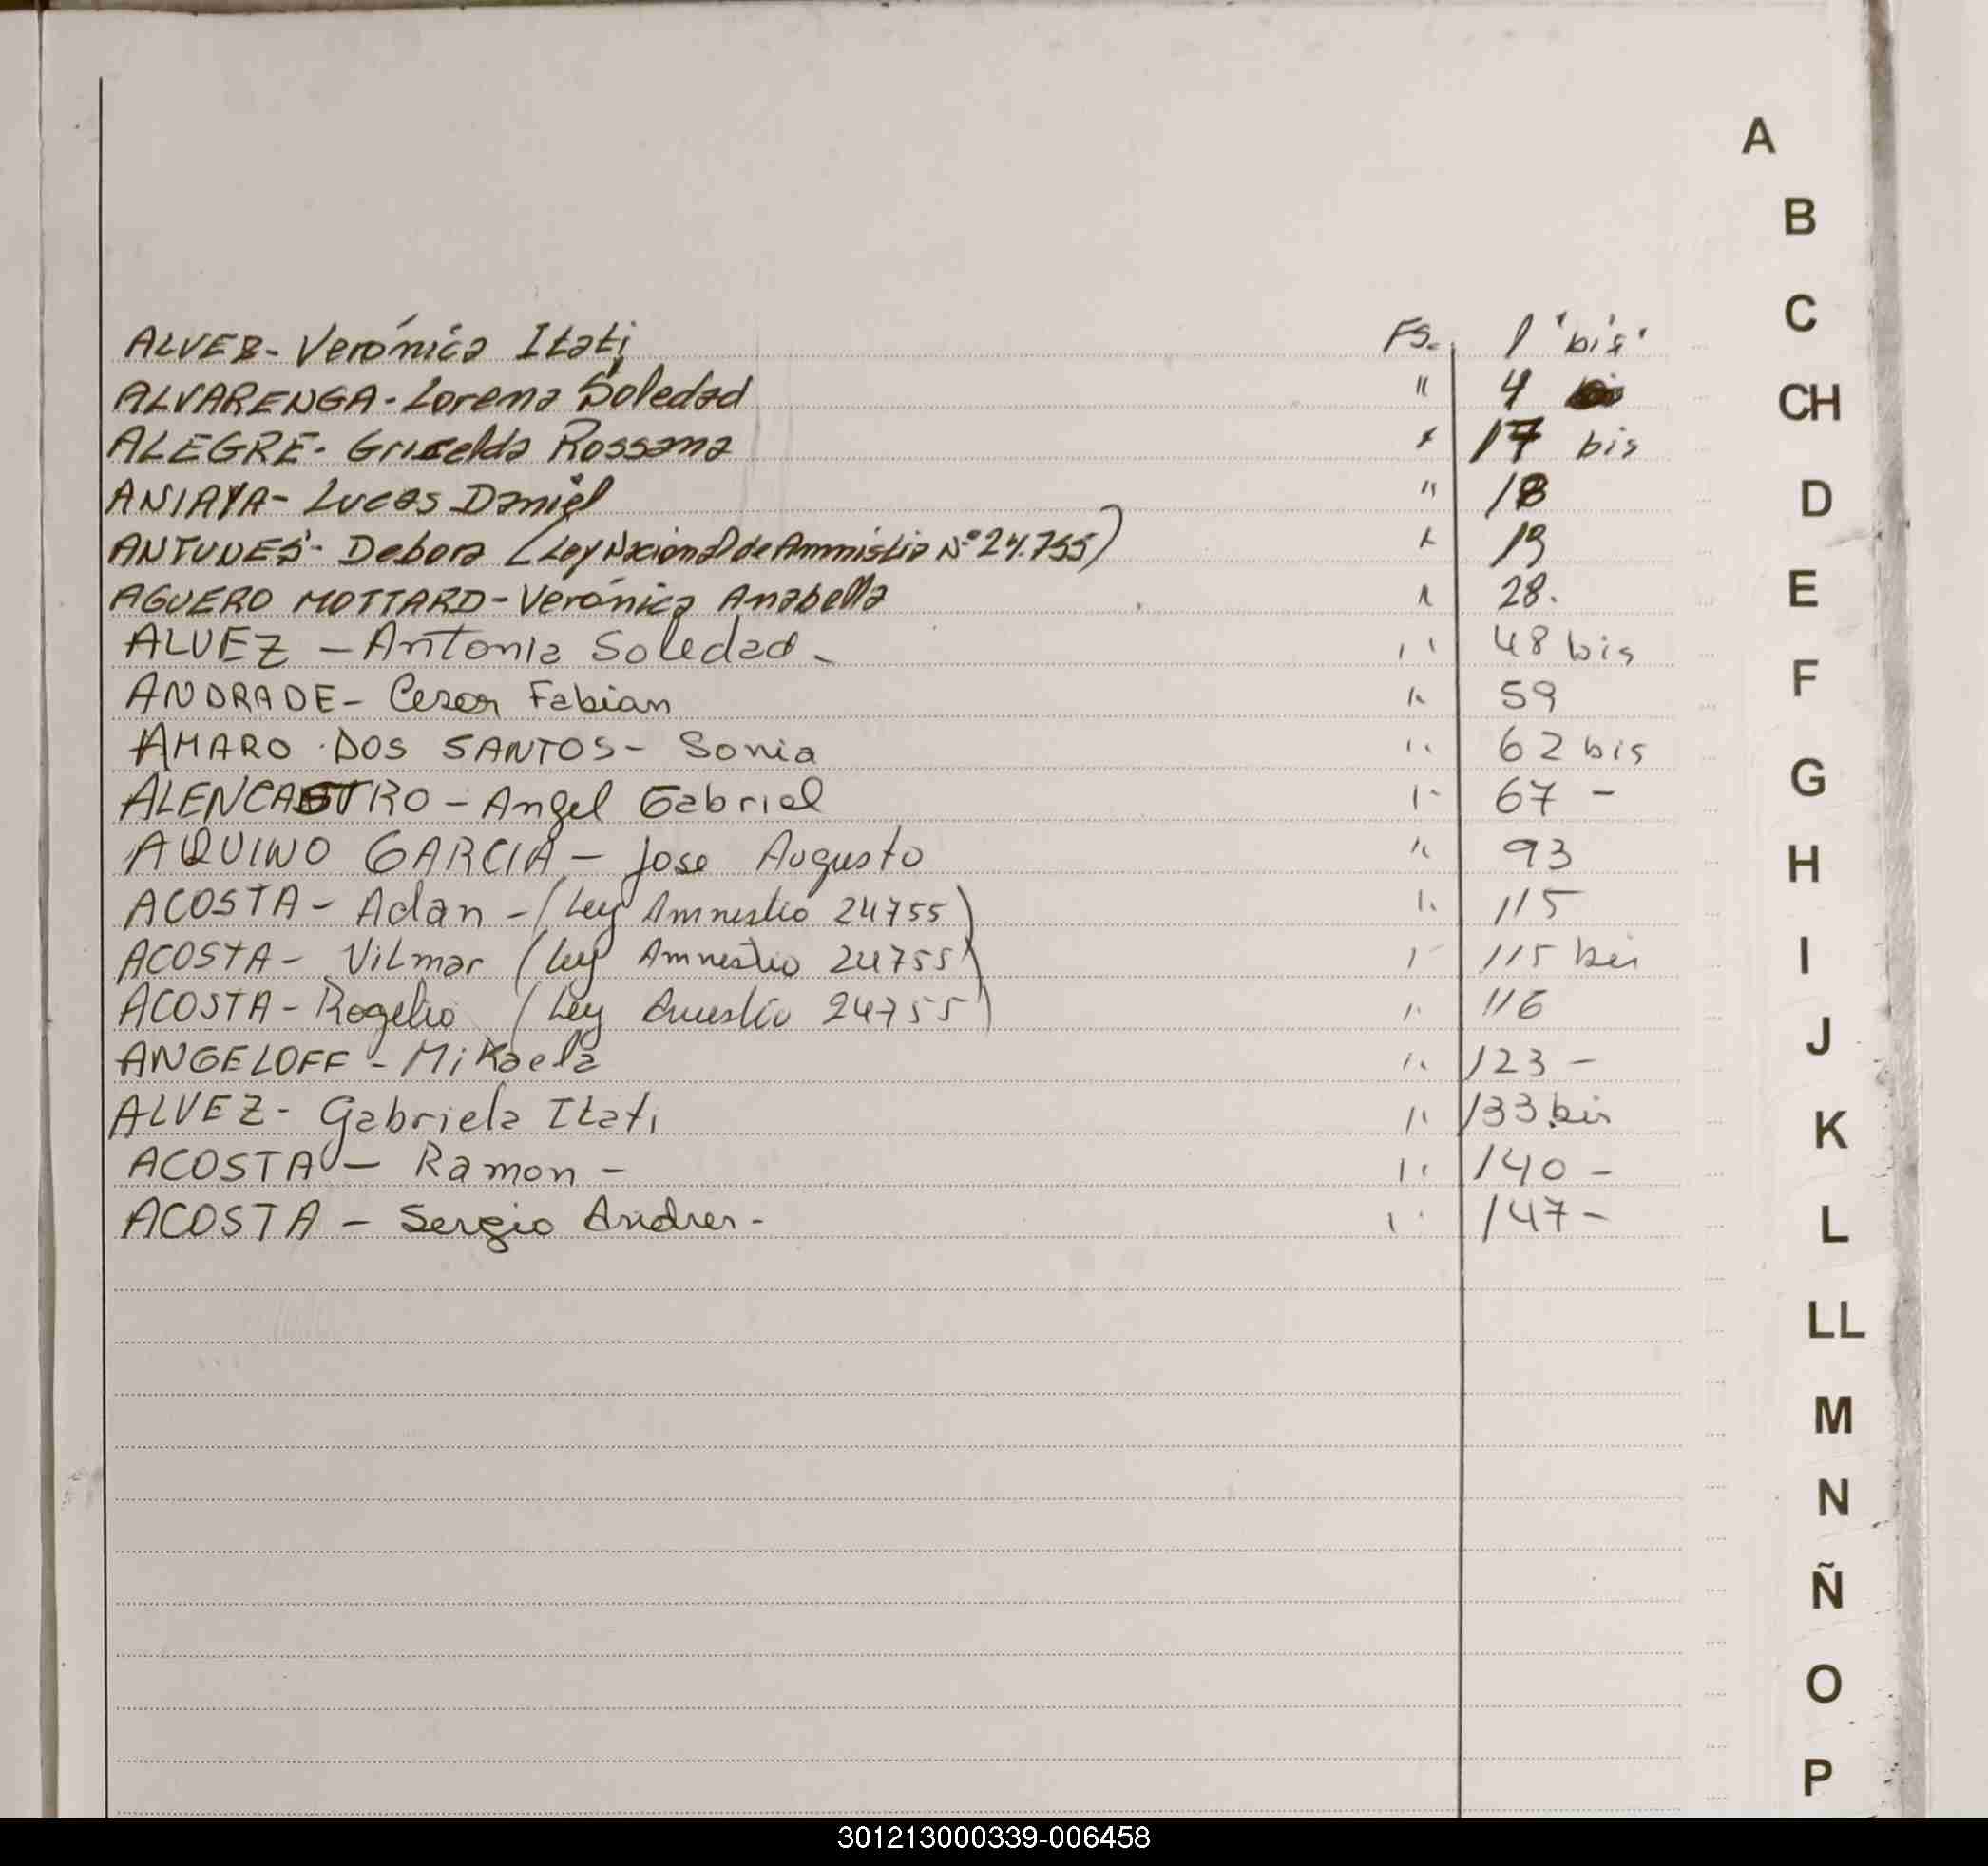 ALVEZ- Verónica Itati Fs. 1 "bis"
ALVARENGA- Lorena Soledad " 4
ALEGRE- Griselda Rossana " 17 bis
Lucas Daniel " 18
ANTUNES- Debora (Ley Nacional de Ammistia Nº 24.755) " 19
AGUERO MOTTARD- Verónica Anabella " 28.
ALVEZ - Antonia Soledad- " 48 bis
ANDRADE- Cesar Fabian " 59
AMARO DOS SANTOS- Sonia " 62 bis
ALENCASTRO- Angel Gabriel " 67 -
AQUINO GARCIA- Jose Augusto " 93
ACOSTA- Adan -(Ley Amnestio 24755) " 115
ACOSTA- Vilmar (Ley Amnestio 24755) " 115 bis
ACOSTA- Rogelio (Ley 24755) " 116
ANGELOFF- Mikaela " 123 -
ALVEZ- Gabriela Itati " 133 bis
ACOSTA - Ramon - " 140 -
ACOSTA - Sergio Andres- " 147 -
A
B
C
CH
D
E
F
G
H
I
J
K
L
LL
M
N
Ñ
O
P
301213000339-006458